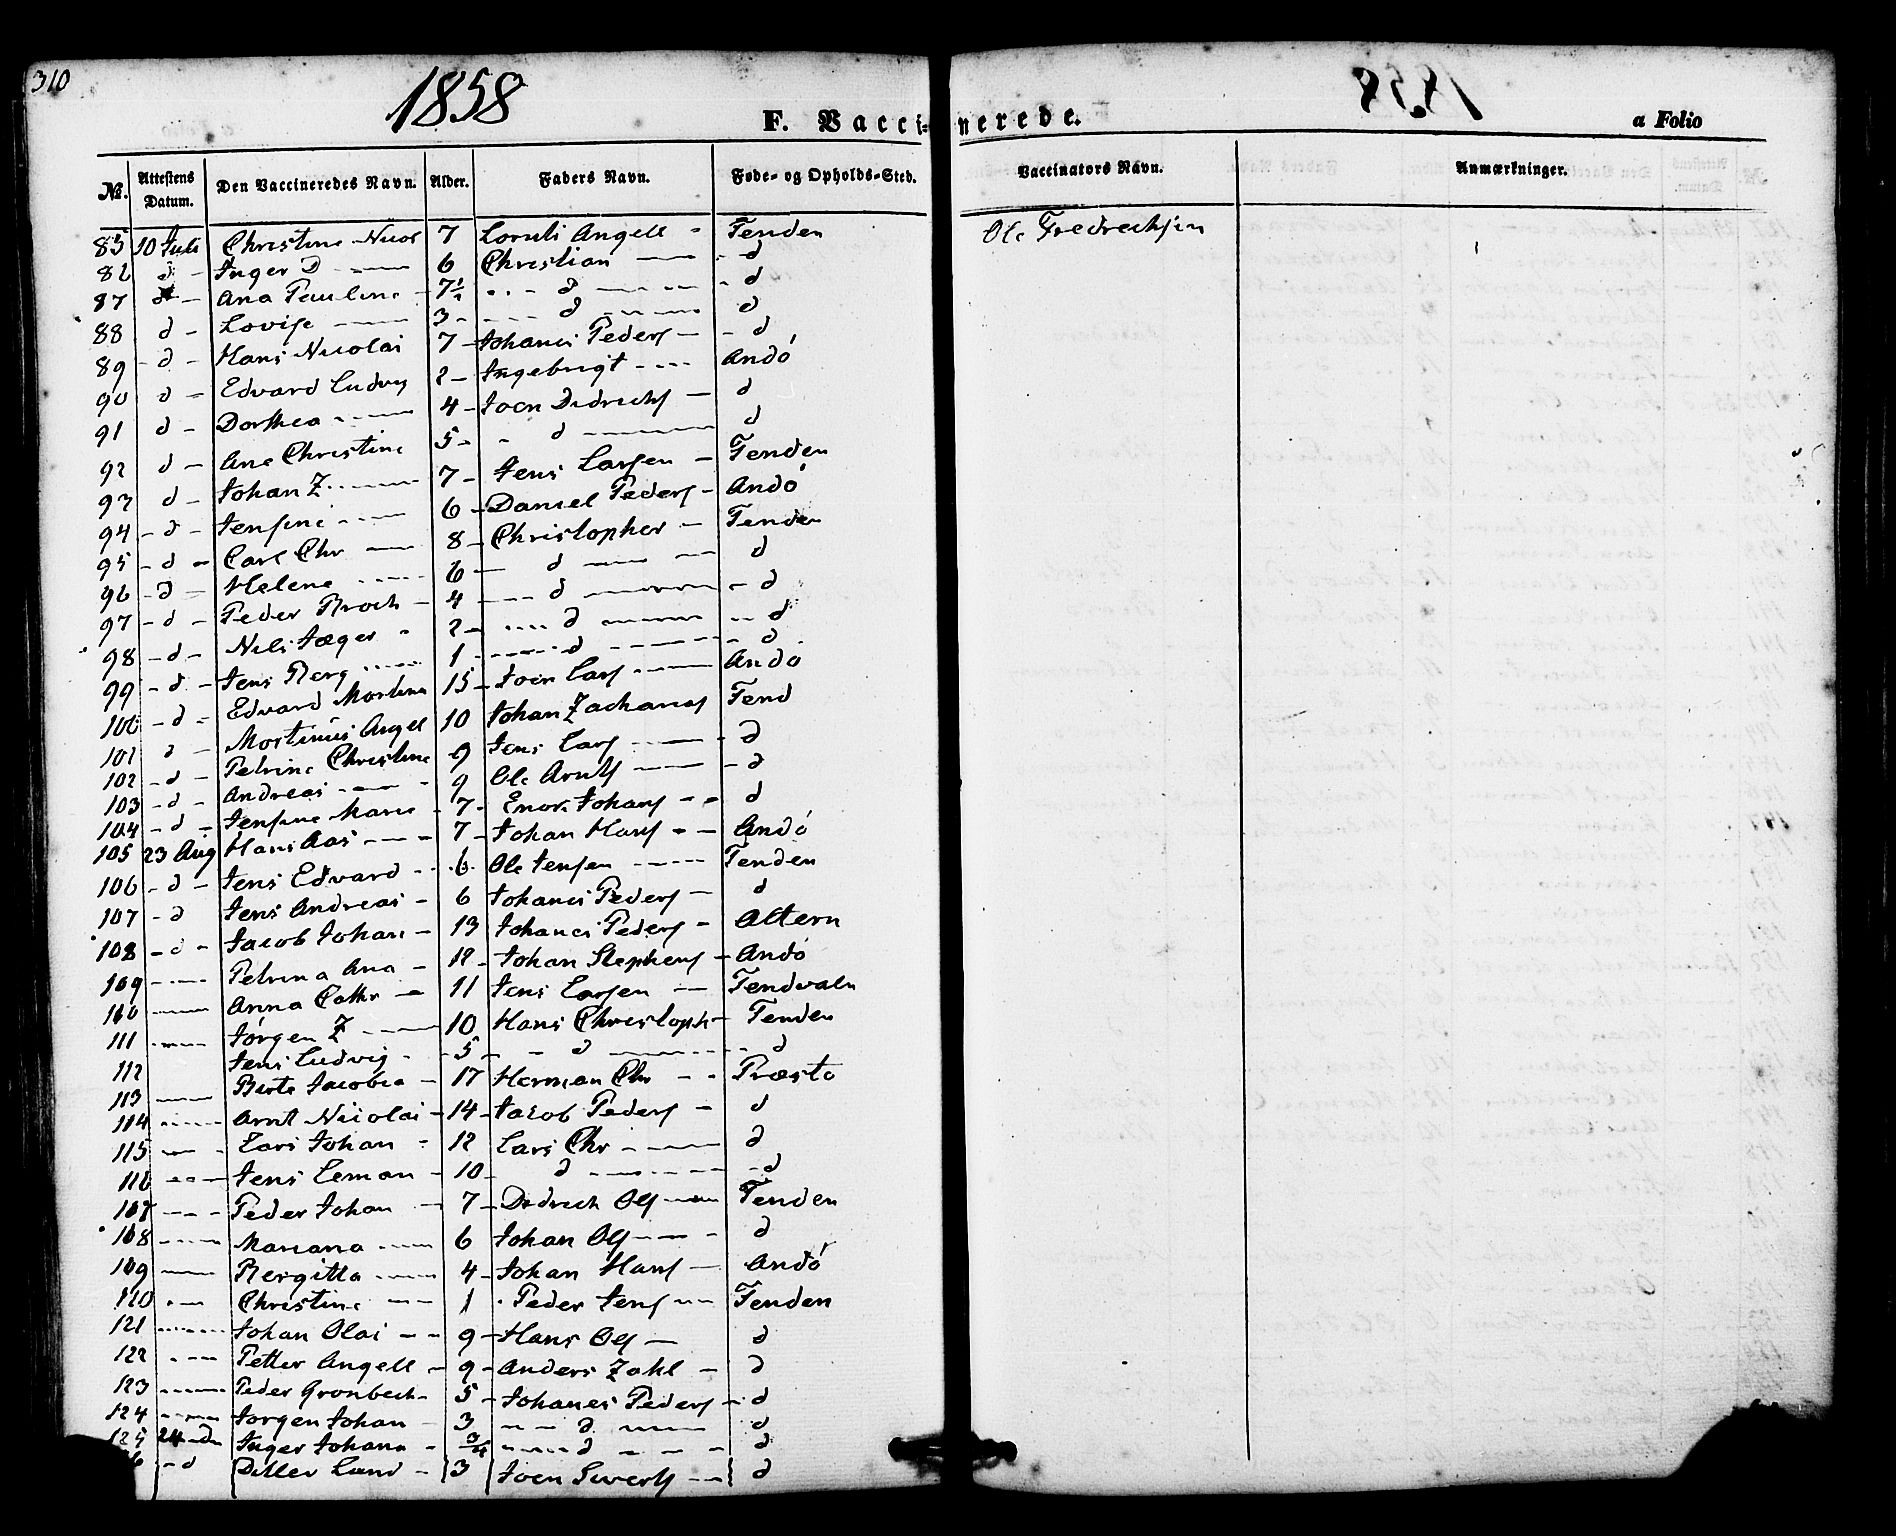 310
1858
F. Vaccinerede.
a Folio
No. Attestens Datum. Den Vaccineredes Navn. Alder. Faders Navn. Føde- og Opholds-Sted. Vaccinators Navn. Anmærkninger.
85 10 Juli Christine Nicol 7 Angell - Tenden Ole Fredrechsen
86 d - Inger D 6 Christian - d
87 d - Ana Pauline - 7½ d - d
88 d - Lovise 3 - d d
89 - d - Hans Nicolai 7 - Johanes Peders - - d
90 d - Edvard Ludvig 2 - Ingebrigt Andö
91 d - Dorthea 4 - Joen Didrichs - d
92 d - Ane Christine 5 - d d
93 d - Johan Z. 7 - Jens Larsen - Tenden
94 - d - Jensine 6 - Daniel Peders - Andö
95 - d - Carl Chr 8 - Christopher - Tenden
96 - d - Helene 6 d d
97 - d - Peder Broch - 4 d - d
98 - d - Nils Jæger - 2 - d - d
99 - d - Jens Berg 1 - d - d
100 - d - Edvard Mortinus 15 - Joen Lars Andö
101 d - Mortinus Angell 10 Johan Zacharias Tend
102 - d - Petrine Christine 9 Jens Lars - d
103 - d - Andreas 9 Ole Arnts - d
104 - d - Jensine Marie - 7 - Enor. Johans - - d
105 23 Aug Hans Aas 7 - Johan Hans - - Andö
106 - d - Jens Edvard 6. Ole Jensen Tenden
107 - d Jens Andreas - 6 Johanes Peders - d
108 - d - Jacob Johan - 13 Johanes Peders - Altern
109 Petrina Ana - 12 - Johan Stephens - Andö
110 Anna Cathr - 11 Jens Larsen - Tendvaln
111 Jörgen Z 10 Hans Christoph - Tenden
112 Jens Ludvig - 5 - d d
113 Berte Jacobea - 17 Herman Chr - - Præsto
114 Arnt Nicolai - 14 - Jacob Peders - d
115 Lars Johan - 12 Lars Chr d
116 Jens Leman - 10 - d - d
117 Peder Johan 7 - Didrech Ols Tenden
118 Mariana 6 Johan Ols d
119 Bergitta 4 - Johan Hans - Andö
120 Christine 1 Peder Jens Tenden
121 Johan Olai - - 9 - Hans Ols - d
122 Petter Angell - 9 - Anders Zahl - d
123 Peder Gronbech - 5 - Johanes Peders - d
124 Jorgen Johan 3 d d
125 24 d Inger Johana - ¾ d d
6 - d Ditlev Lund - 3 Joen Siverts d